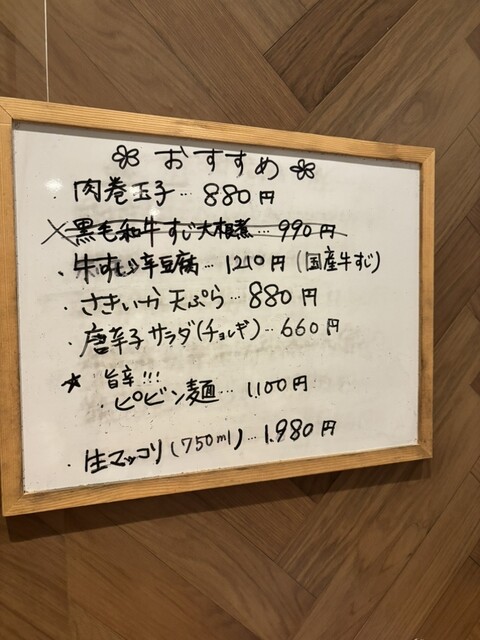 おすすめ
・肉巻玉子…880円
黒毛和牛すじ大根煮…990円
・牛すじ辛豆腐…1210円(国産牛すじ)
・さきいか天ぷら…880円
・唐辛子サラダ(チョレギ)…660円
☆旨辛!!!
・ピビン麺…1,100円
・生マッコリ(750ml)…1,980円